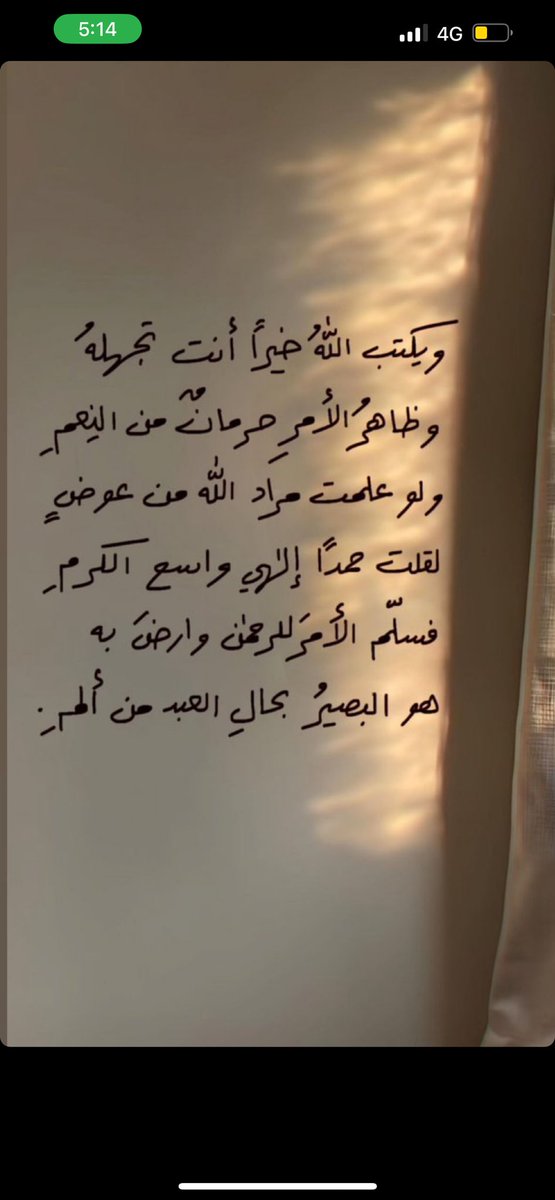 5:14
4G
ويكتب اللهُ خيراً أنت تجهلهُ
وظاهرُ الأمرِ حرمانٌ من النِعمِ
ولو علمت مراد الله من عوضٍ
لقلت حمدًا إلٰهي واسع الكرمِ
فسلّم الأمرَ للرحمٰن وارضَ به
هو البصيرُ بحالِ العبد من ألمِ.